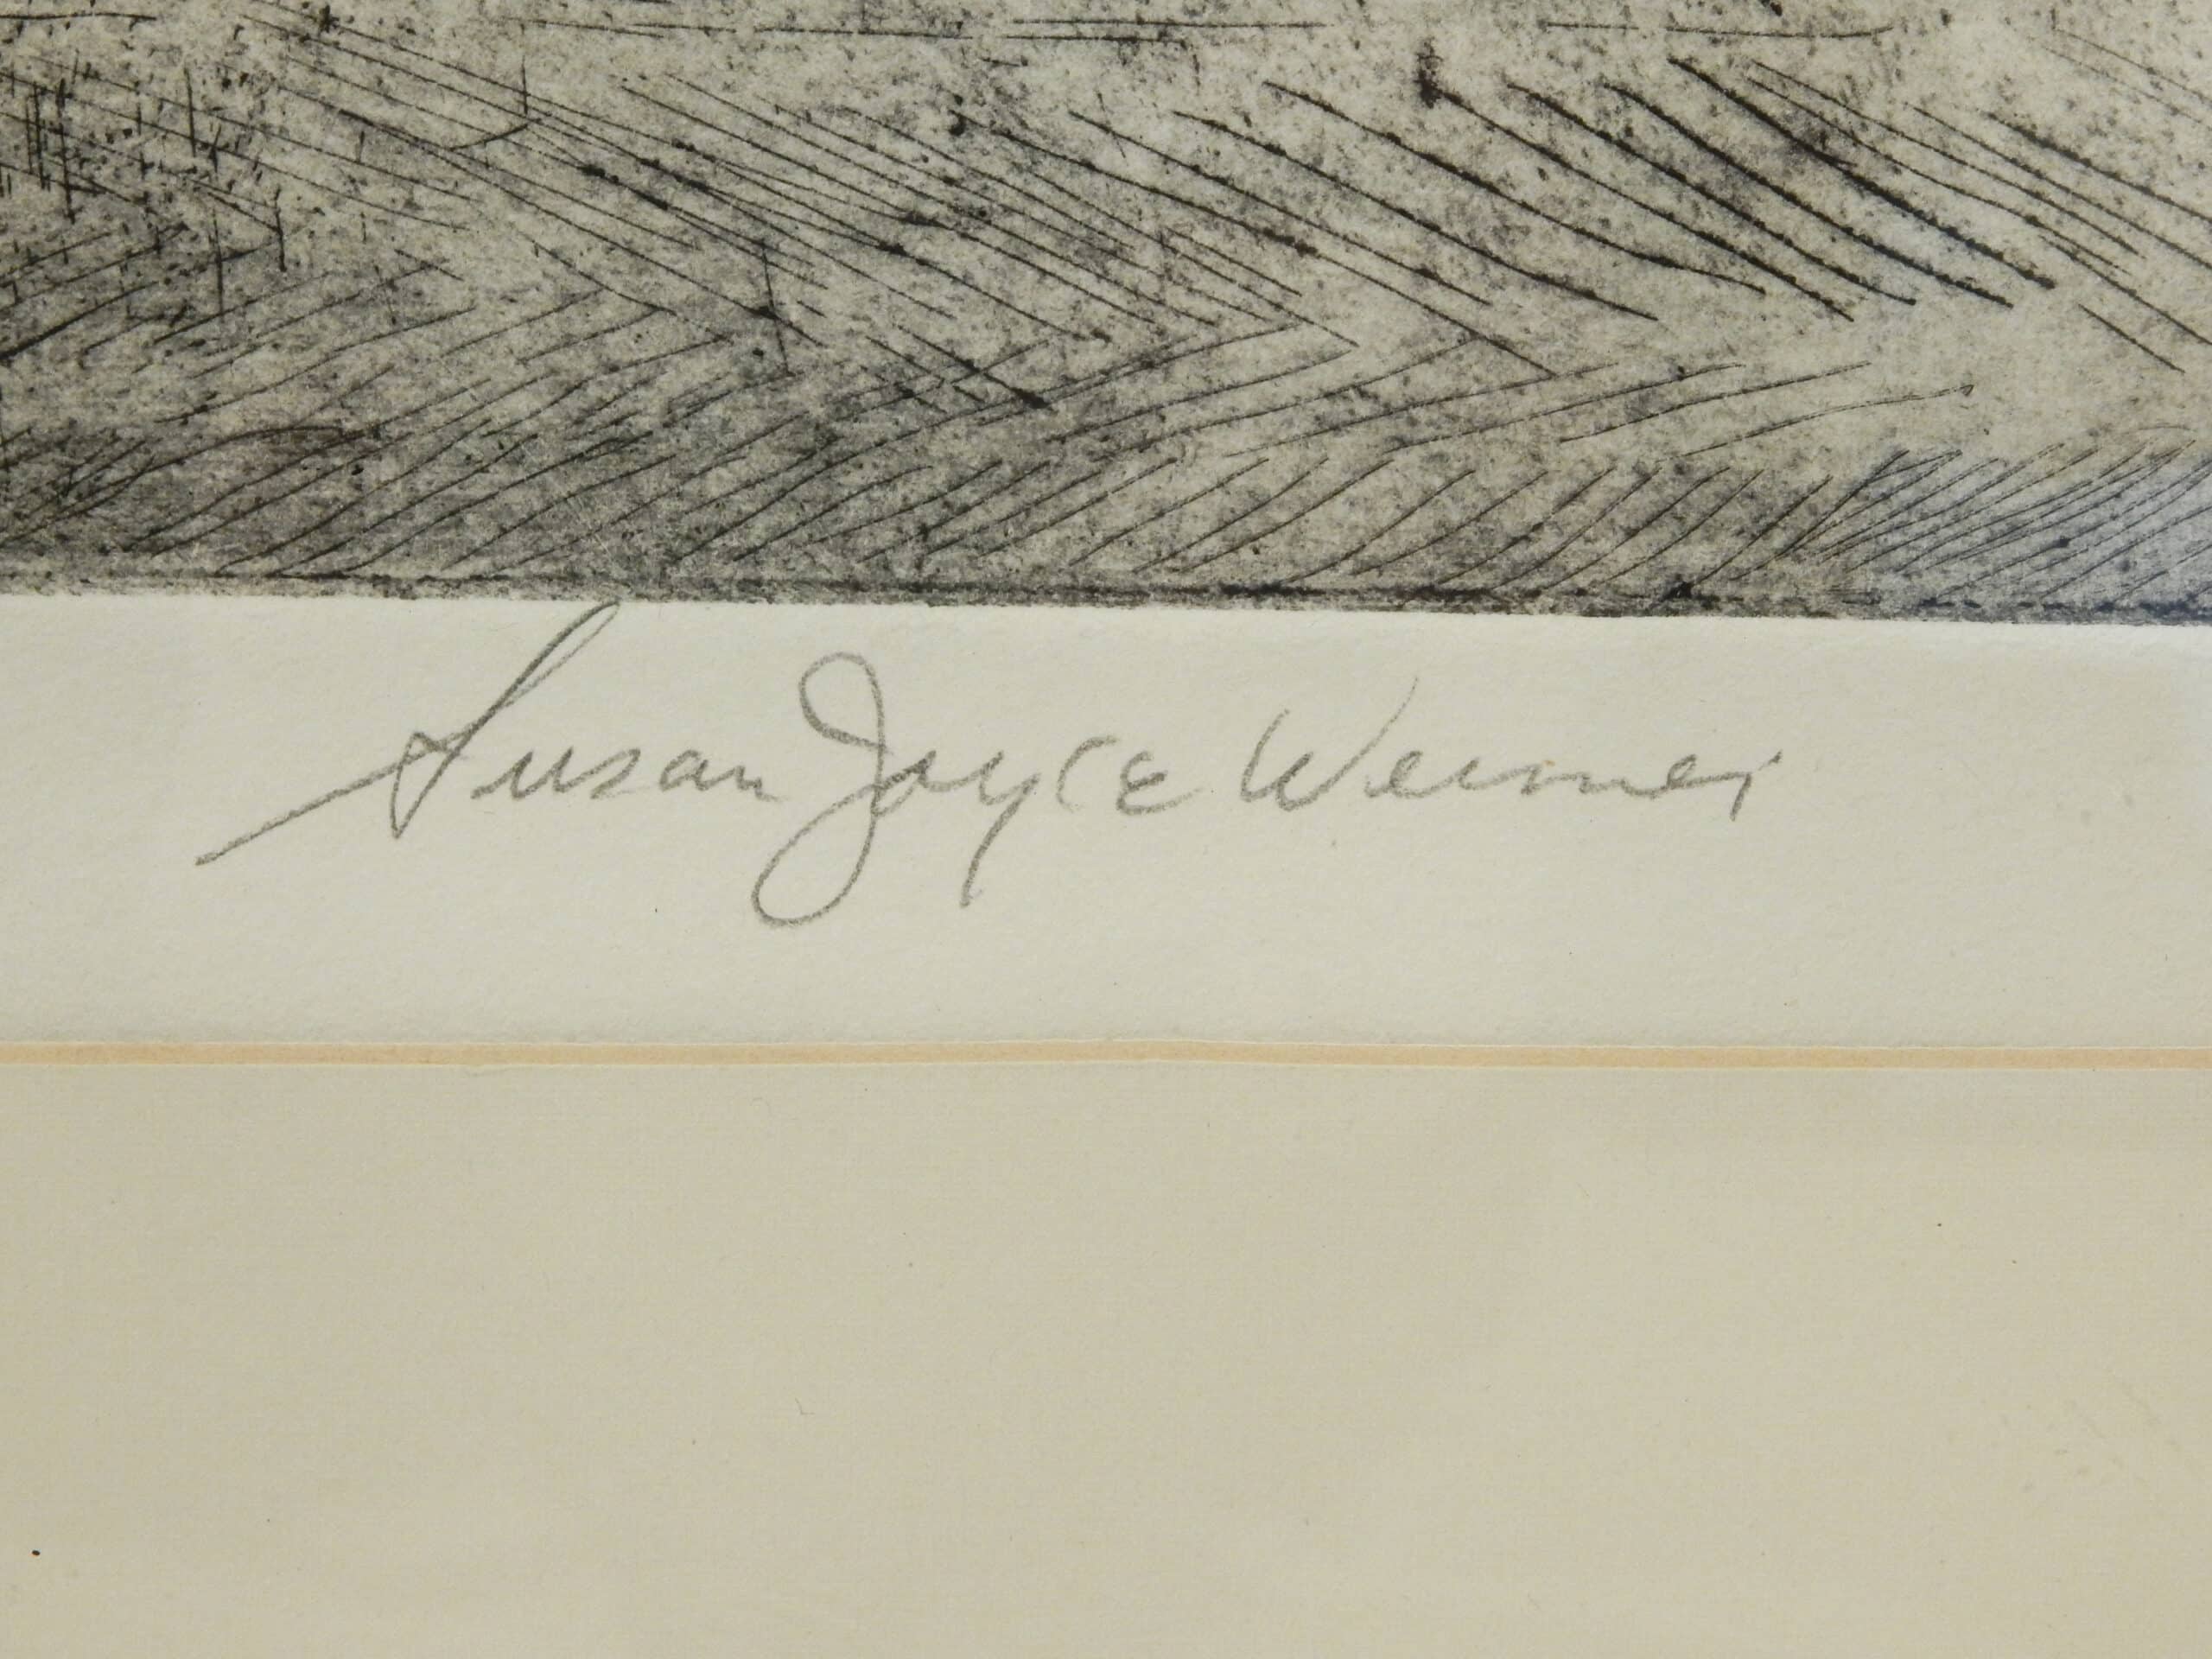 Susan Joyce Werner